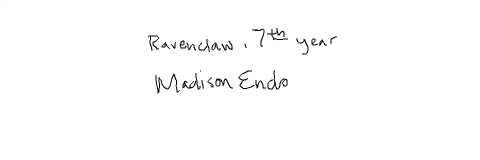 Ravenclaw, 7th year
Madison Endo